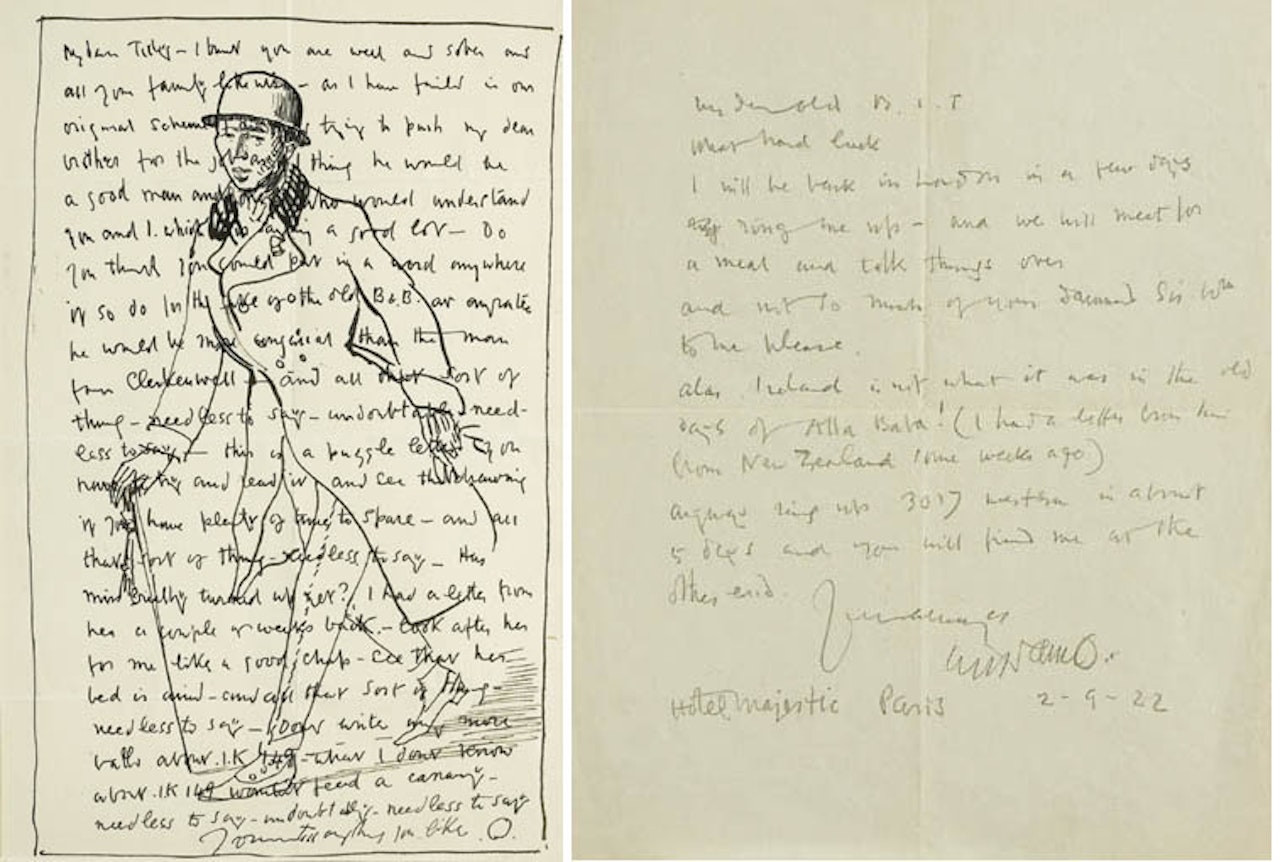 My dear Titley – I trust you are well and sober and
all your family likewise – as I have failed in our
original scheme I am trying to push my dear
brother for the job and I thing he would be
a good man and who would understand
you and I. which is saying a good lot – Do
you think you could put in a word anywhere
if so do for the sake of the old B&B. at any rate
he would be more congenial than the man
from Clerkenwell – and all that sort of
thing – needless to say – undoubtably – need-
less to say – this is a puzzle letter you
have to try and read it and see the drawing
if you have plenty of time to spare – and all
that sort of thing – needless to say – Has
miss turned up yet? I had a letter from
her a couple of weeks back. – Look after her
for me like a good chap – see that her
bed is aired – and all that sort of thing –
needless to say – Dont write any more
about .I.K 149 – what I dont know
about .IK 149 wouldnt feed a canary –
needless to say – undoubtably – needless to say
Yours till anything you like . O.
My dear old B. I. T
What hard luck
I will be back in London in a few days
ring me up – and we will meet for
a meal and talk things over
and not so much of your damned Sir
to me please.
alas. Ireland is not what it was in the old
days of Alla Baba! (I had a letter from him
from New Zealand some weeks ago)
anyway ring up 3017 western in about
5 days and you will find me at the
other end.
Yours always
William O.
Hotel Majestic Paris 2-9-22